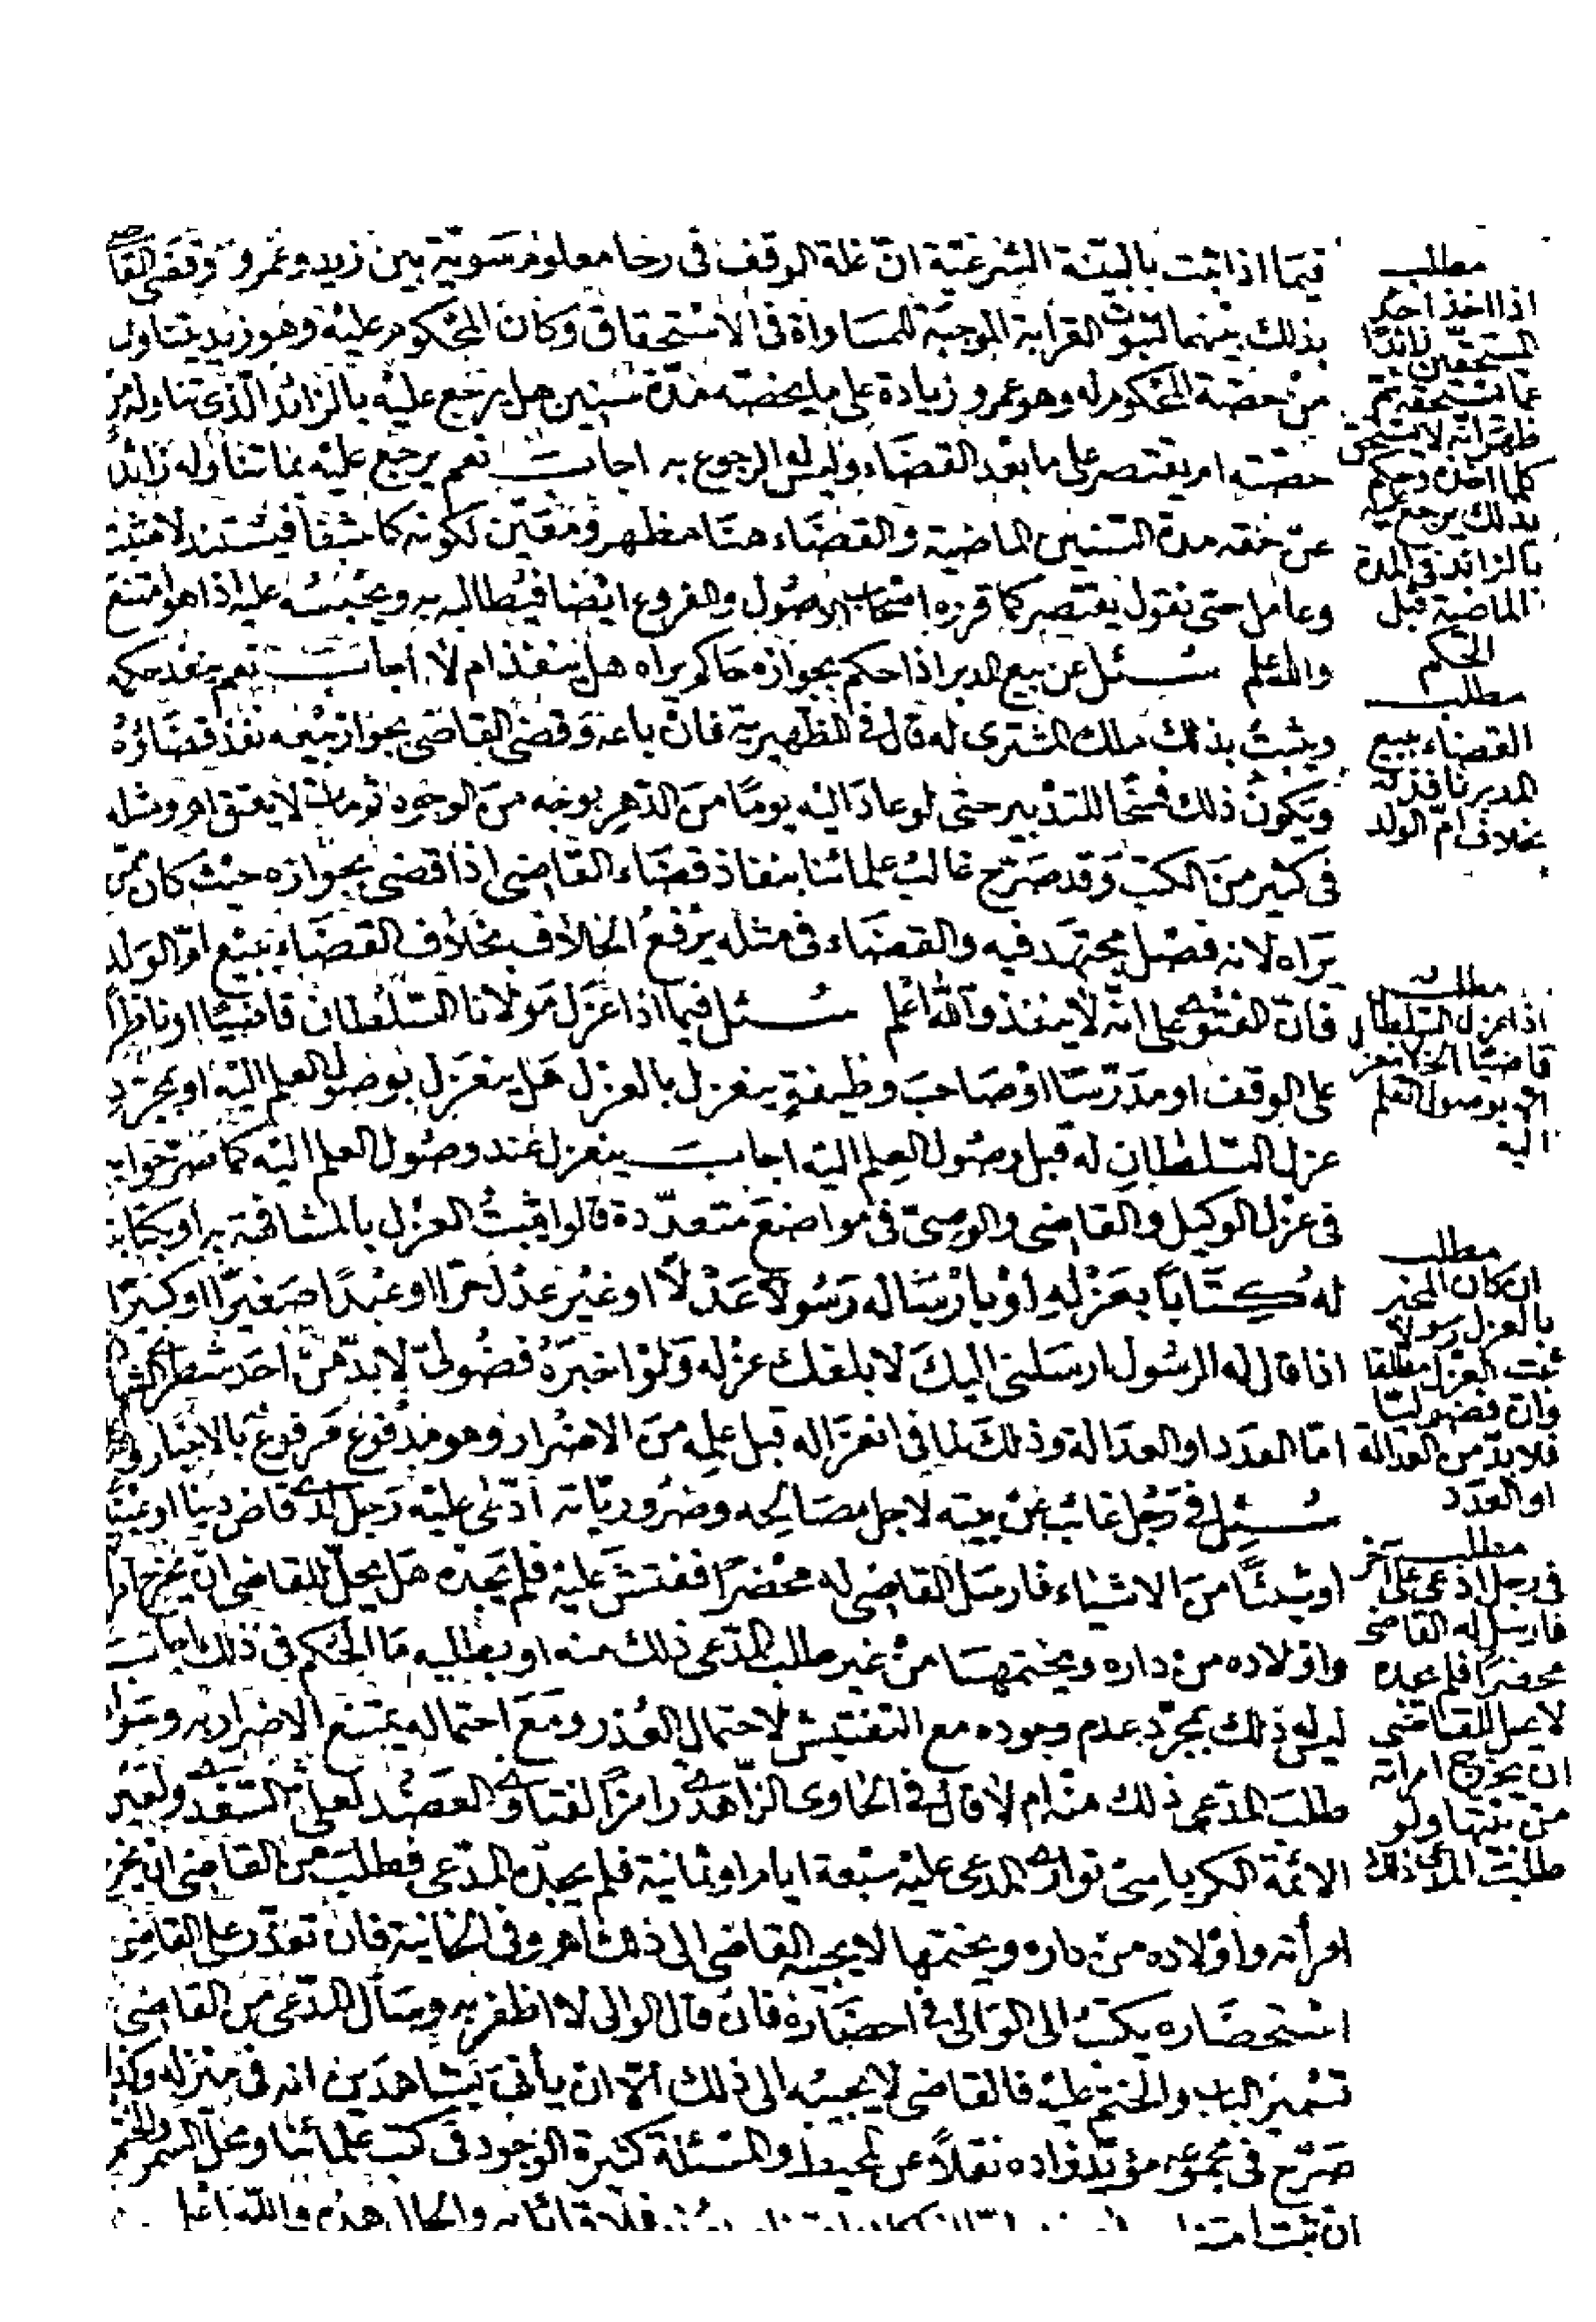 فيما اذا ثبت بالبينة الشرعية ان غلة الوقف فى رحا معلوم سوية بين زيد وعمرو وقضى القاضى
بذلك بينهما لثبوت القرابة الموجبة للمساواة فى الاستحقاق وكان المحكوم عليه وهو زيد يتناول
من حصة المحكوم له وهو عمرو زيادة على ما يخصه مدة سنين هل يرجع عليه بالزائد الذى تناوله من
حصته ام يقتصر على ما بعد القضاء وليس له الرجوع به اجاب نعم يرجع عليه بما تناوله زائدا
عن حقه مدة السنين الماضية والقضاء هنا مظهر ومعين لكونه كاشفا فيستند لا مثبت
وعامل حتى نقول يقتصر كما قرره اصحاب الاصول والفروع ايضا فيطالبه به ويحبسه عليه اذا هو امتنع
والله اعلم سئل عن بيع المدبر اذا حكم بجوازه حاكم يراه هل ينفذ ام لا اجاب نعم ينفذ حكمه
ويثبت بذلك ملك المشترى له قال فى الظهيرية فان باعه وقضى القاضى بجواز بيعه نفذ قضاؤه
ويكون ذلك فسخا للتدبير حتى لو عاد اليه يوما من الدهر بوجه من الوجوه ثم مات لا يعتق اهـ ومثله
فى كثير من الكتب وقد صرح غالب علمائنا بنفاذ قضاء القاضى اذا قضى بجوازه حيث كان ممن
يراه لانه فصل مجتهد فيه والقضاء فى مثله يرفع الخلاف بخلاف القضاء ببيع ام الولد
فان الفتوى على انه لا ينفذ والله اعلم سئل فيما اذا عزل مولانا السلطان قاضيا او ناظرا
على الوقف او مدرسا او صاحب وظيفة ينعزل بالعزل هل ينعزل بوصول العلم اليه او بمجرد
عزل السلطان له قبل وصول العلم اليه اجاب ينعزل عند وصول العلم اليه كما صرحوا به
فى عزل الوكيل والقاضى والوصى فى مواضع متعددة قالوا يثبت العزل بالمشافهة به او بكتابة
له كتابا بعزله او بارساله رسولا عدلا او غير عدل حرا او عبدا صغيرا او كبيرا
اذا قال له الرسول ارسلنى اليك لابلغك عزله ولو اخبره فضولى لا بد من احد شطرى الشهادة
اما العدد او العدالة وذلك لما فى انعزاله قبل علمه من الاضرار وهو مدفوع مرفوع بالاخبار
سئل فى رجل غائب عن بيته لاجل مصالحه وضرورياته ادعى عليه رجل لدى قاض دينا او عينا
او شيئا من الاشياء فارسل القاضى له محضرا ففتش عليه فلم يجده هل يحل للقاضى ان يخرج امراته
واولاده من داره ويختمها من غير طلب المدعى ذلك منه او بطلبه ما الحكم فى ذلك اجاب
ليس له ذلك بمجرد عدم وجوده مع التفتيش لاحتمال العذر ومع احتماله يمتنع الاضرار به وسواء
طلب المدعى ذلك منه ام لا قال فى الحاوى الزاهدى رامزا لفتاوى العضد لعلى السغدى ولغير
الائمة الكرباسى توارى المدعى عليه سبعة ايام او ثمانية فلم يجده المدعى فطلب من القاضى ان يخرج
امرأته واولاده من داره ويختمها لا يجيبه القاضى الى ذلك اهـ وفى الخانية فان تعذر على القاضى
استحضاره يكتب الى الوالى فى احضاره فان قال الوالى لا اظفر به وسأل المدعى من القاضى
تسمير الباب والختم عليه فالقاضى لا يجيبه الى ذلك الا ان يأتى بشاهدين انه فى منزله وكذا
صرح فى مجموعه مؤيد زاده نقلا عن المحيط والمسئلة كثيرة الوجود فى كتب علمائنا ومحل السمر والختم
ان ثبت والحال هذه والله اعلم
مطلب
اذا اخذ احد
المستحقين زائدا
عما يستحقه ثم
ظهر انه لا يستحق
كلما اخذه وحكم
بذلك يرجع عليه
بالزائد فى المدة
الماضية قبل
الحكم
مطلب
القضاء ببيع
المدبر نافذ
بخلاف ام الولد
مطلب
اذا عزل السلطان
قاضيا الخ لا ينعزل
الا بوصول العلم
اليه
مطلب
ان كان المخبر
بالعزل رسولا
ثبت العزل مطلقا
وان فضوليا
فلا بد من العدالة
او العدد
مطلب
فى رجل ادعى على آخر
فارسل له القاضى
محضرا فلم يجده
لا يحل للقاضى
ان يخرج امراته
من بيتها ولو
طلب المدعى ذلك